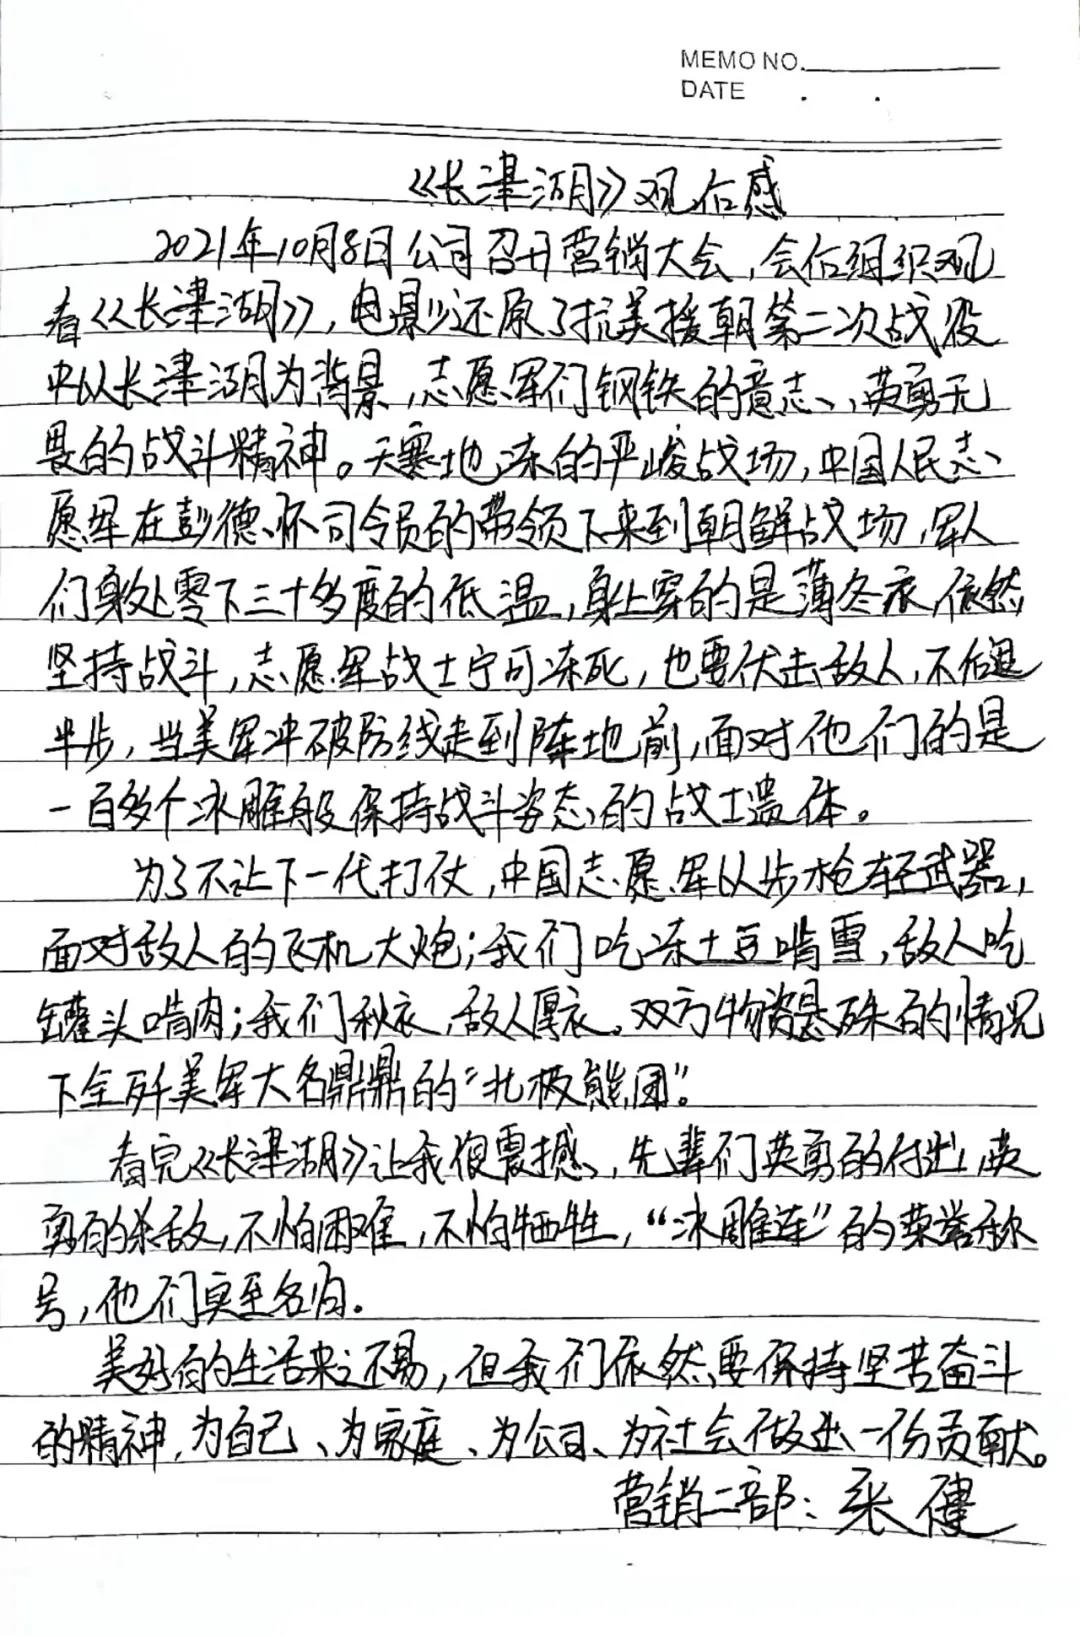 MEMO NO.
DATE . .
《长津湖》观后感
2021年10月8日公司召开营销大会，会后组织观
看《长津湖》，电影还原了抗美援朝第二次战役
中以长津湖为背景，志愿军们钢铁的意志、英勇无
畏的战斗精神。天寒地冻的严峻战场，中国人民志
愿军在彭德怀司令员的带领下来到朝鲜战场，军人
们身处零下三十多度的低温，身上穿的是薄冬衣，依然
坚持战斗，志愿军战士宁可冻死，也要伏击敌人，不后退
半步，当美军冲破防线走到阵地前，面对他们的是
一百多个冰雕般保持战斗姿态的战士遗体。
为了不让下一代打仗，中国志愿军以步枪轻武器，
面对敌人的飞机大炮；我们吃冻土豆啃雪，敌人吃
罐头啃肉；我们秋衣，敌人厚衣。双方物资悬殊的情况
下全歼美军大名鼎鼎的“北极熊团”。
看完《长津湖》让我很震撼，先辈们英勇的付出，英
勇的杀敌，不怕困难，不怕牺牲，“冰雕连”的荣誉称
号，他们实至名归.
美好的生活来之不易，但我们依然要保持坚苦奋斗
的精神，为自己、为家庭、为公司、为社会做出一份贡献。
营销二部：张健